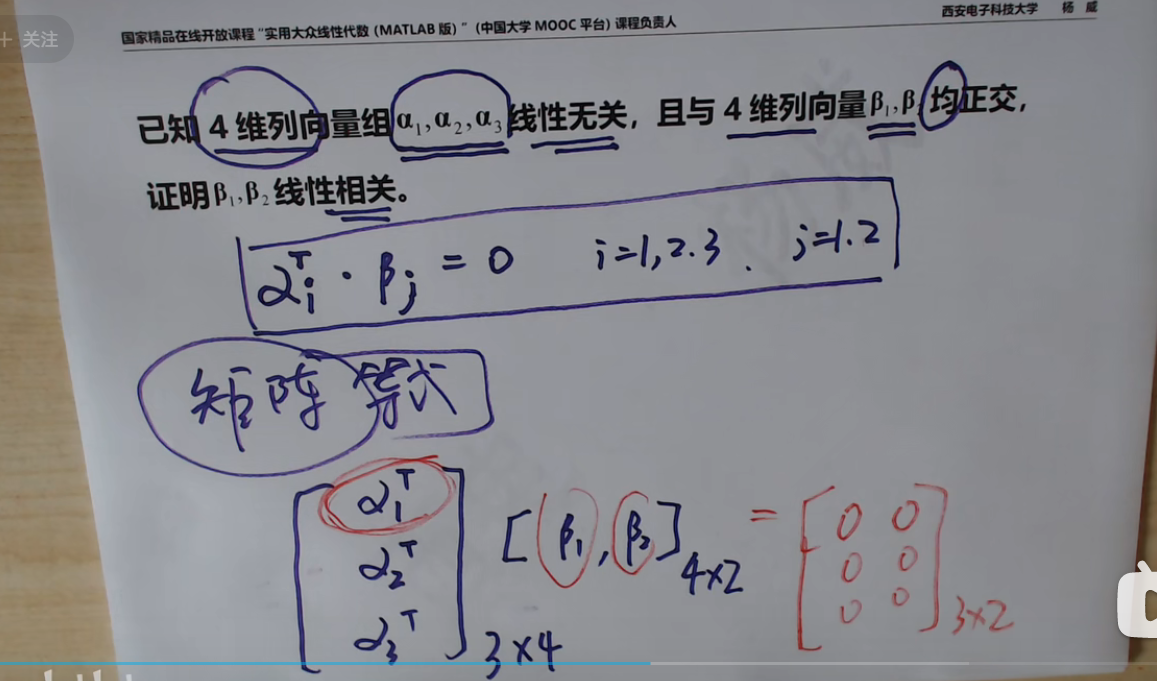 + 关注
国家精品在线开放课程“实用大众线性代数(MATLAB 版)”(中国大学 MOOC 平台)课程负责人
西安电子科技大学 杨 威
已知 4 维列向量组 α₁,α₂,α₃ 线性无关，且与 4 维列向量 β₁,β 均正交，
证明 β₁,β₂ 线性相关。
αᵢᵀ · βⱼ = 0 i=1,2.3 . j=1.2
矩阵 等式
[ α₁ᵀ [ β₁ , β₂ ]₄ₓ₂ = [ 0 0
α₂ᵀ 0 0
α₃ᵀ ]₃ₓ₄ 0 0 ]₃ₓ₂